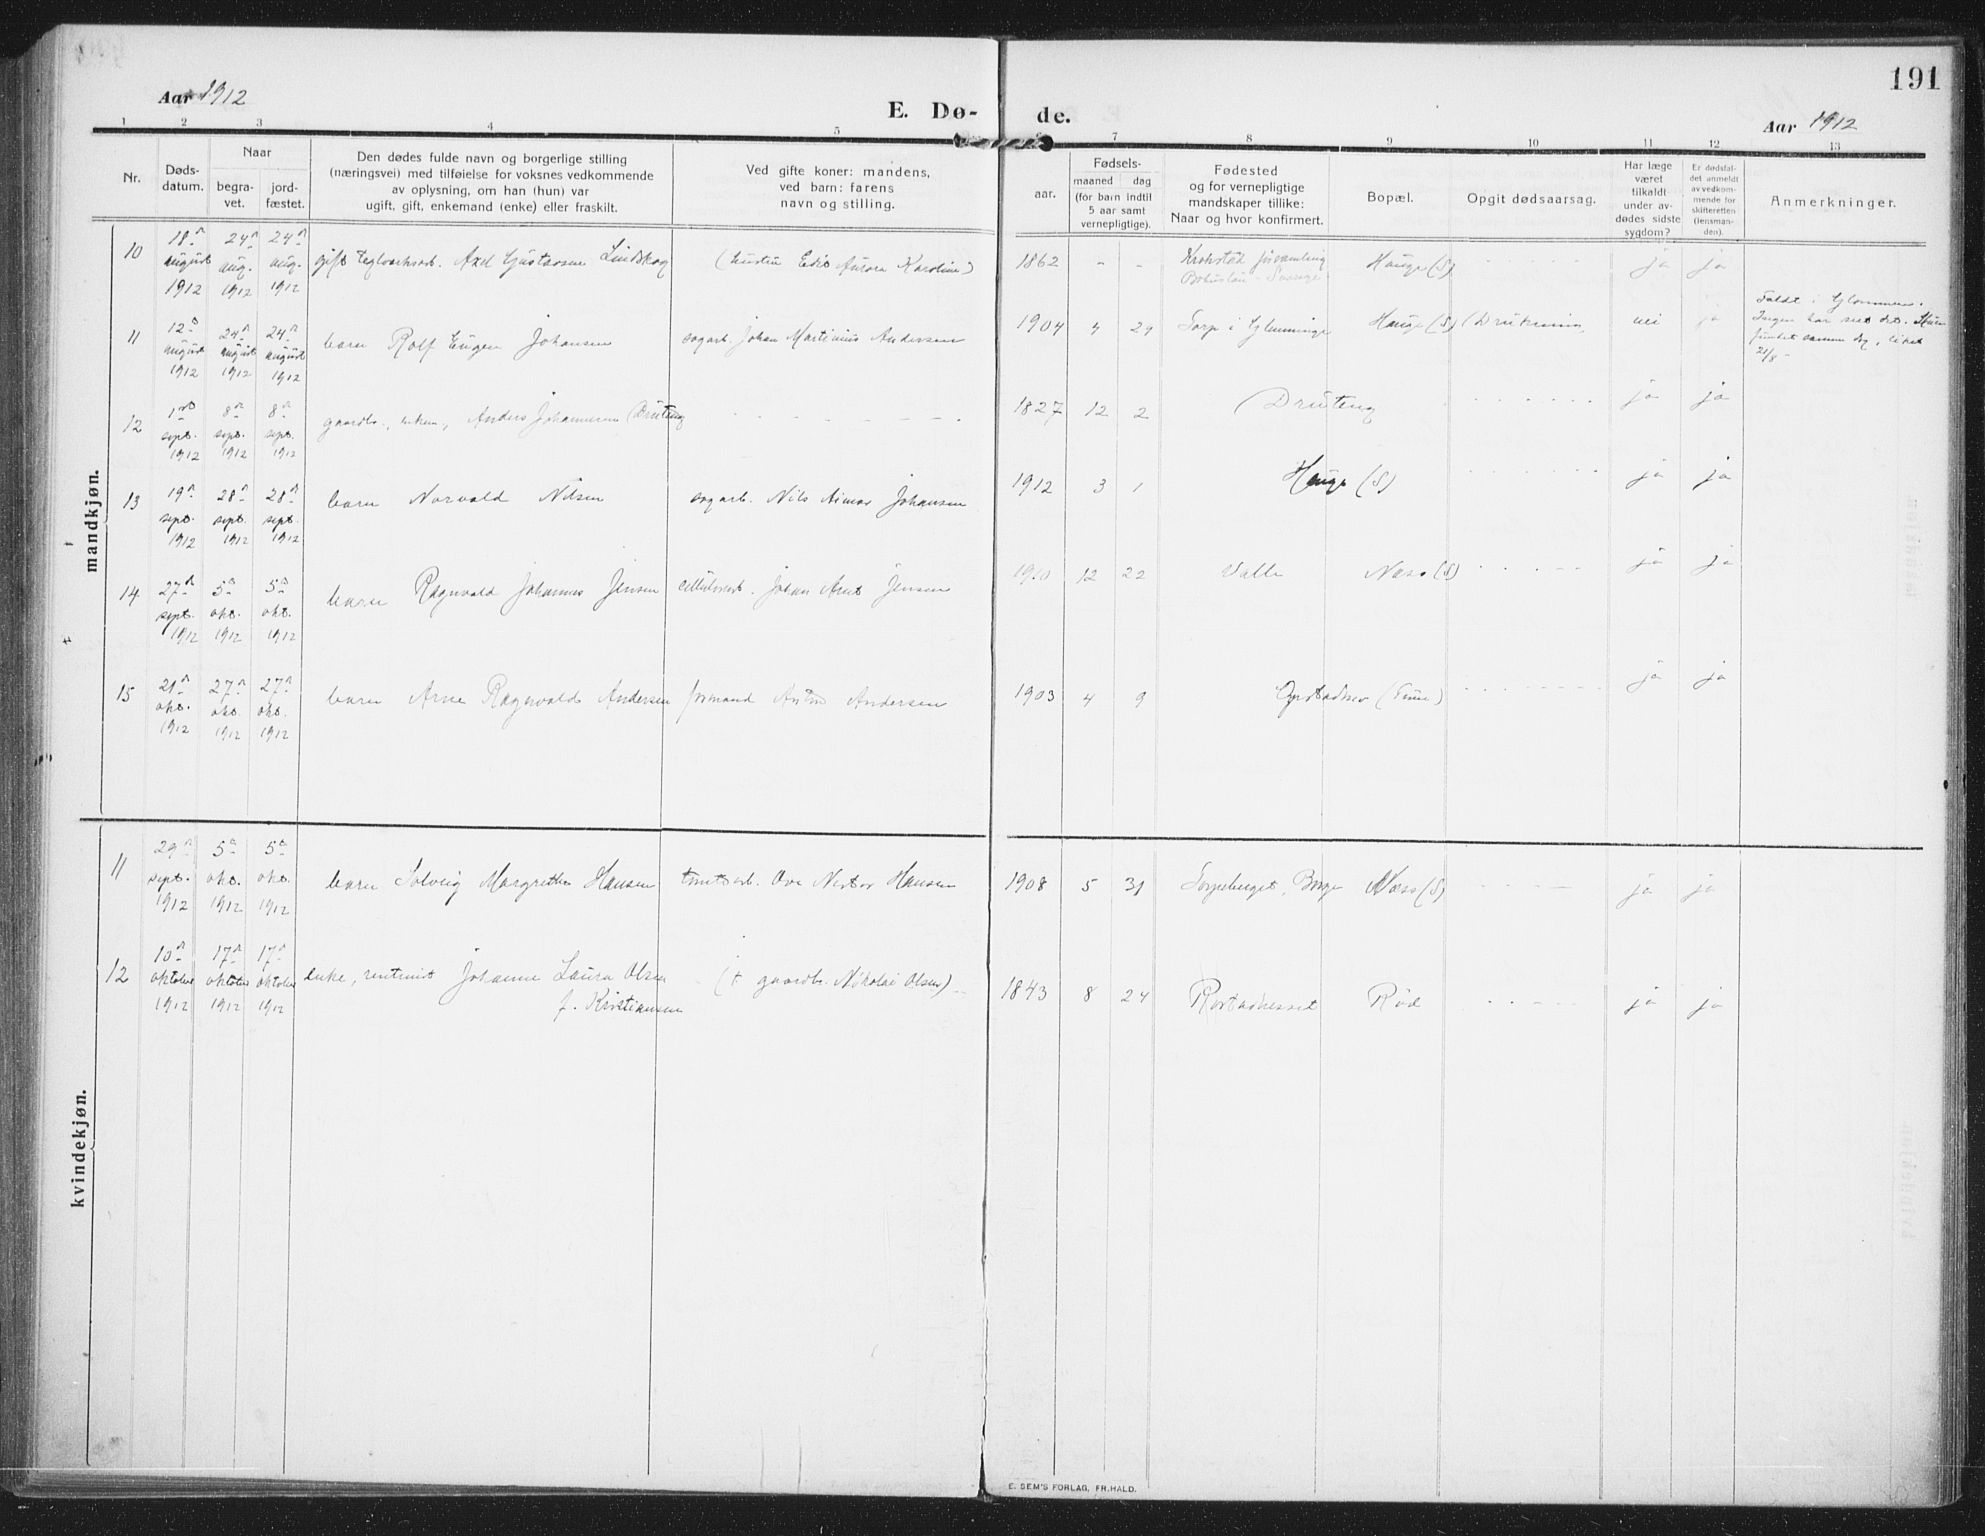 191
Aar 1912
E. Dø-
de.
Aar 1912
1 2 3 4 5 7 8 9 10 11 12 13
Nr.
Døds-
datum.
Naar
begra-
vet.
jord-
fæstet.
Den dødes fulde navn og borgerlige stilling
(næringsvei) med tilføielse for voksnes vedkommende
av oplysning, om han (hun) var
ugift, gift, enkemand (enke) eller fraskilt.
Ved gifte koner: mandens,
ved barn: farens
navn og stilling.
aar.
Fødsels-
maaned dag
(for barn indtil
5 aar samt
vernepligtige).
Fødested
og for vernepligtige
mandskaper tillike:
Naar og hvor konfirmert.
Bopæl.
Opgit dødsaarsag.
Har læge
været
tilkaldt
under av-
dødes sidste
sygdom?
Er dødsfal-
det anmeldt
av vedkom-
mende for
skifteretten
(lensman-
den).
Anmerkninger.
mandkjøn.
10 18 august 1912 24 aug. 1912 24 aug. 1912 gift teglverksarb. Axel Gustavsen Lindskog (hustru Edis Aurora Karoline) 1862 - - Krokstad forsamling
Bohuslän - Sverige Hauge (S) ja ja
11 12 august 1912 24 august 1912 24 august 1912 barn Rolf Eugen Johansen sagarb. Johan Martinius Andersen 1904 4 24 Torp i Glemminge Hauge (S) (Drukning nei ja
Faldt i Glommen.
Ingen har set det.
fundet samme dag, liket
21/8 -
12 1 sept. 1912 8 sept. 1912 8 sept. 1912 gaardbr., enkem., Anders Johannesen 1827 12 2 ja ja
13 19 sept. 1912 28 sept. 1912 28 sept. 1912 barn Norvald Nilsen sagarb. Nils Johansen 1912 3 1 Hauge (S) ja ja
14 27 sept. 1912 5 okt. 1912 5 okt. 1912 barn Ragnvald Johannes Jensen Johan Arnt Jensen 1910 12 22 Valle Næss (S) ja ja
15 21 okt. 1912 27 okt. 1912 27 okt. 1912 barn Arne Ragnvald Andersen formand Anton Andersen 1903 4 9 ja ja
kvindekjøn.
11 29 sept. 1912 5 okt. 1912 5 okt. 1912 barn Solveig Margrethe Hansen Ove Nestor Hansen 1908 5 31 Torpeberget, Borge Næss (S) ja ja
12 10 oktober 1912 17 oktober 1912 17 oktober 1912 enke, rentenist Johanne Laura Olsen (+ gaardbr. Nikolai Olsen) 1843 8 24 Rostadnesset Rød ja ja
f. Kristiansen
E. SEM'S FORLAG, FR.HALD.